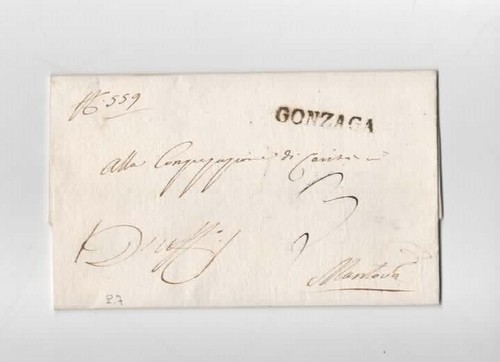 N. 559
GONZAGA
Alla Congregazione di Carità in
3
Mantova
27